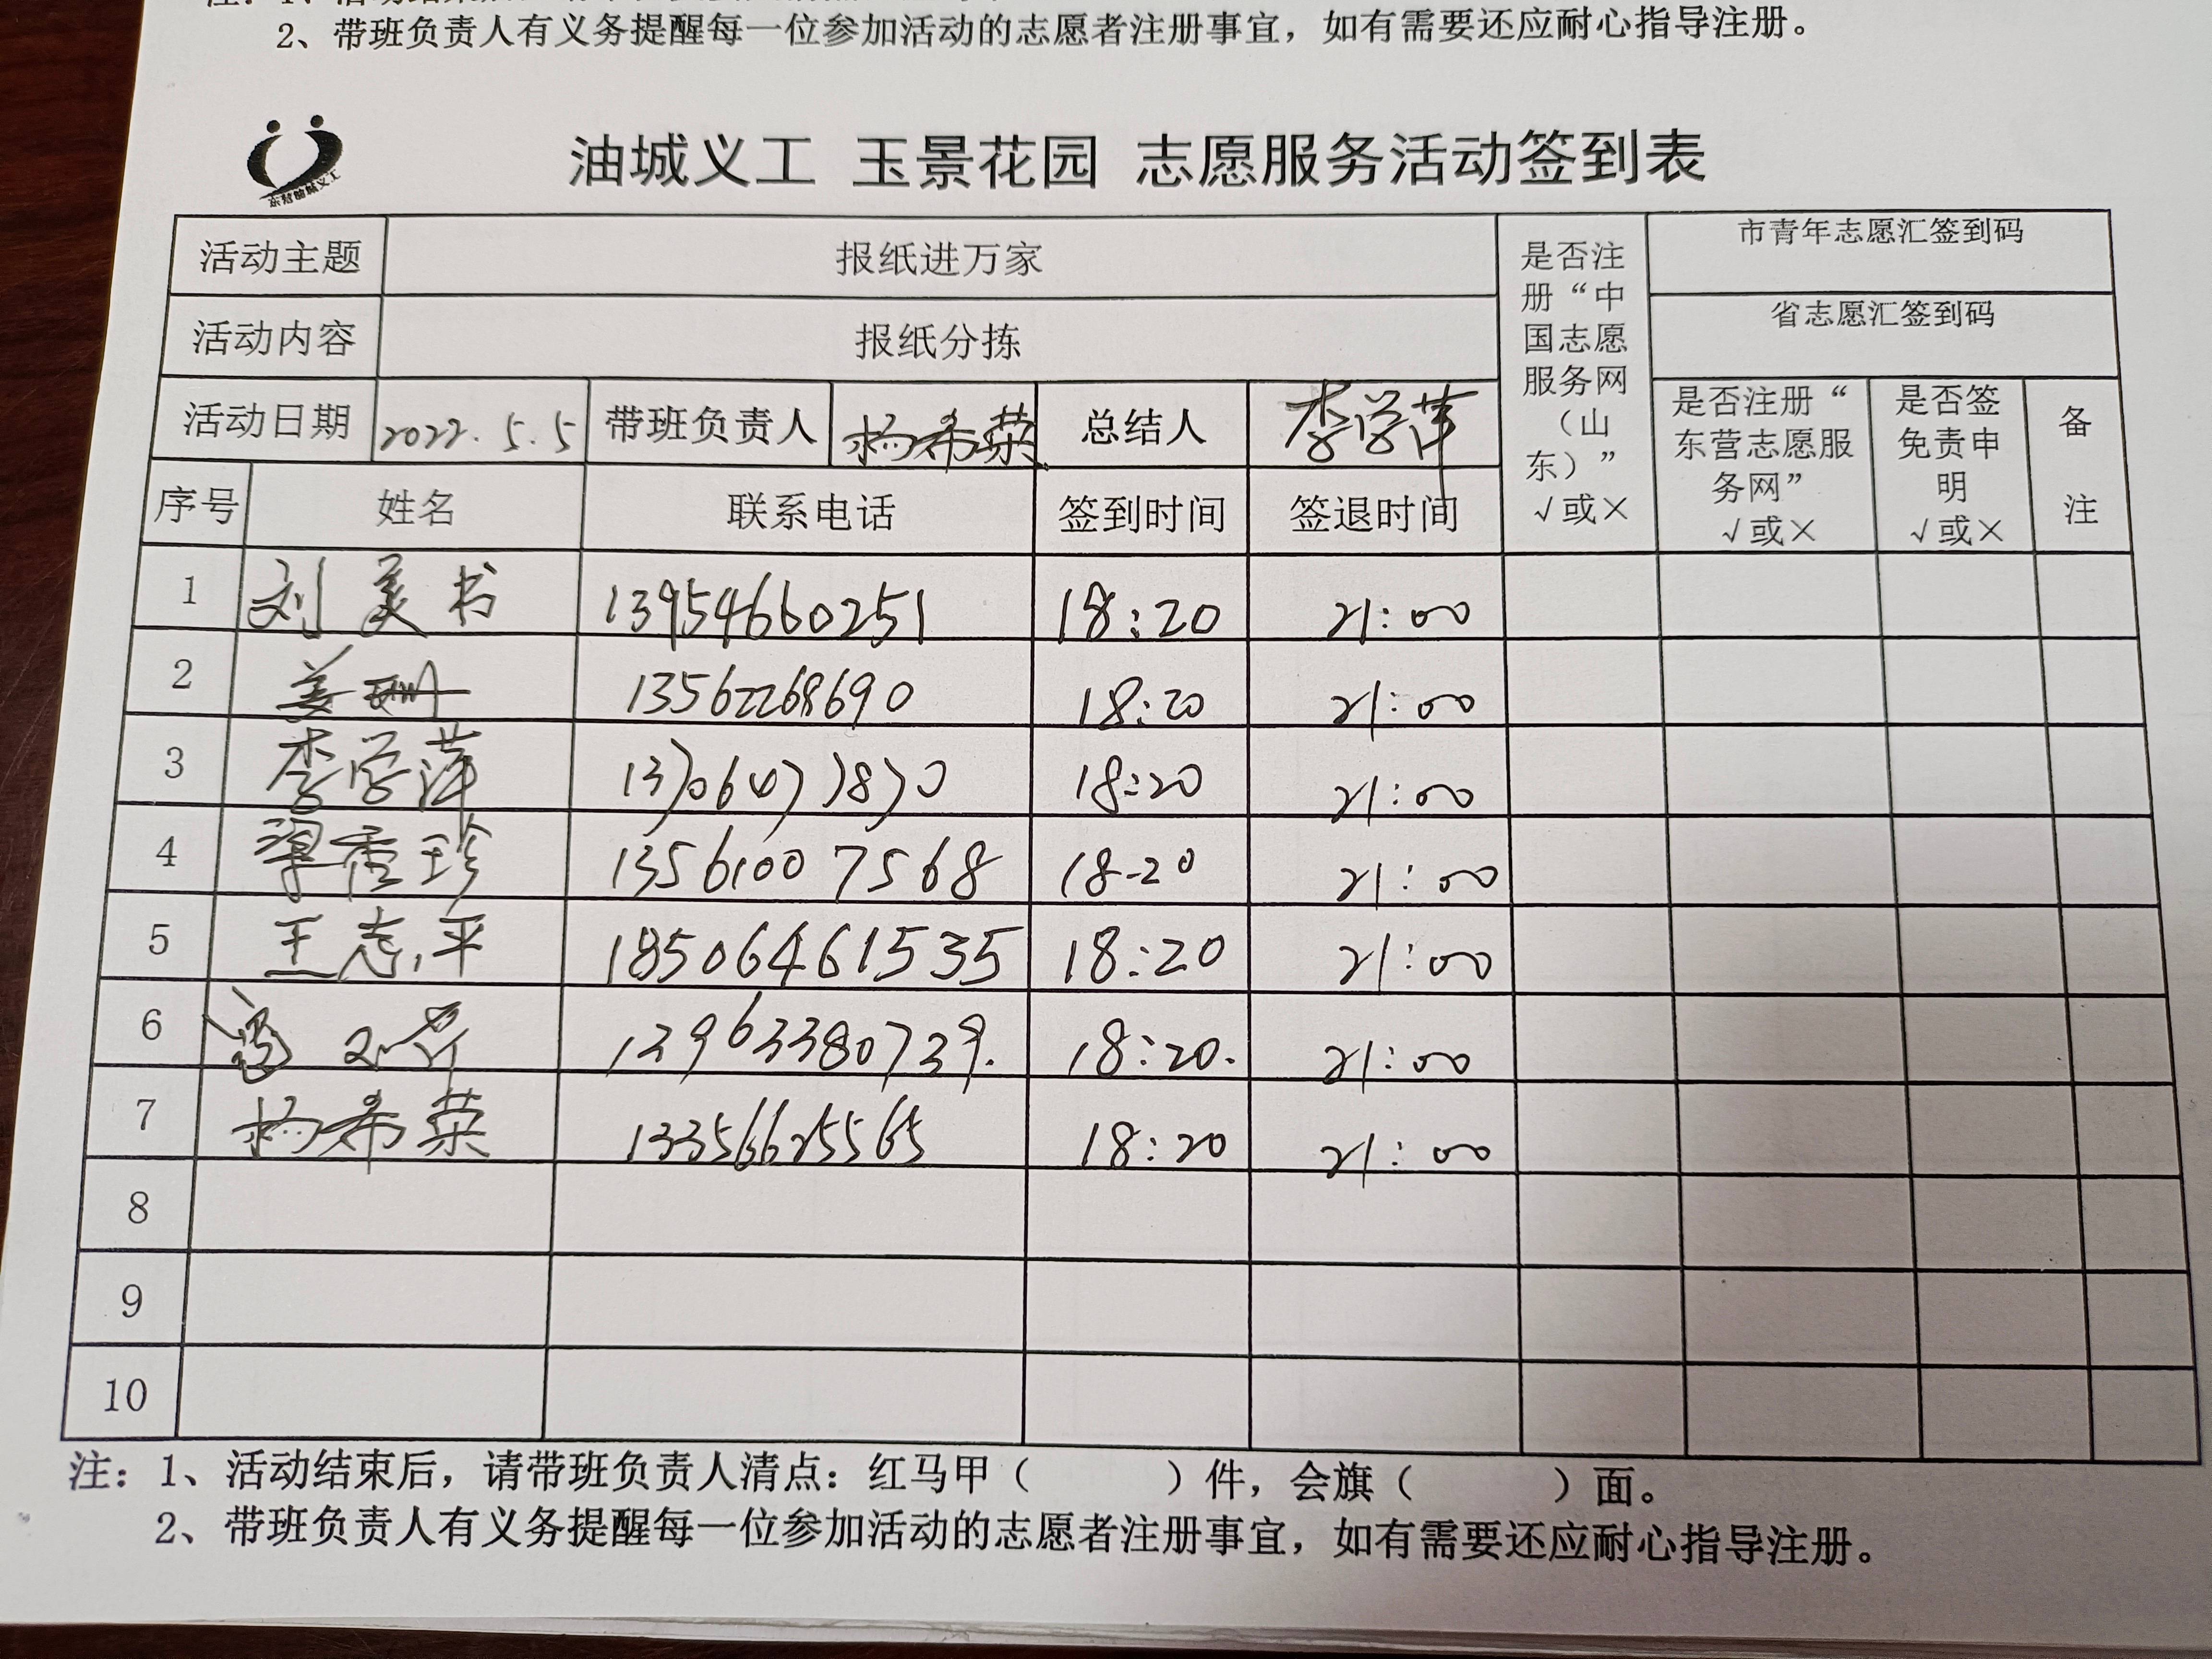 2、带班负责人有义务提醒每一位参加活动的志愿者注册事宜，如有需要还应耐心指导注册。
油城义工 玉景花园 志愿服务活动签到表
活动主题 报纸进万家
活动内容 报纸分拣
活动日期 2022.5.5 带班负责人 杨希荣 总结人 李学萍
是否注
册“中
国志愿
服务网
（山
东）”
√或×
市青年志愿汇签到码
省志愿汇签到码
是否注册“
东营志愿服
务网”
√或×
是否签
免责申
明
√或×
备
注
序号 姓名 联系电话 签到时间 签退时间
1 刘美书 13954660251 18:20 21:00
2 姜珊 13562268690 18:20 21:00
3 李学萍 13706477870 18:20 21:00
4 梁秀珍 13561007568 18-20 21:00
5 王志平 18506461535 18:20 21:00
6 13963380739. 18:20. 21:00
7 杨希荣 13356625565 18:20 21:00
8
9
10
注：1、活动结束后，请带班负责人清点：红马甲（ ）件，会旗（ ）面。
2、带班负责人有义务提醒每一位参加活动的志愿者注册事宜，如有需要还应耐心指导注册。